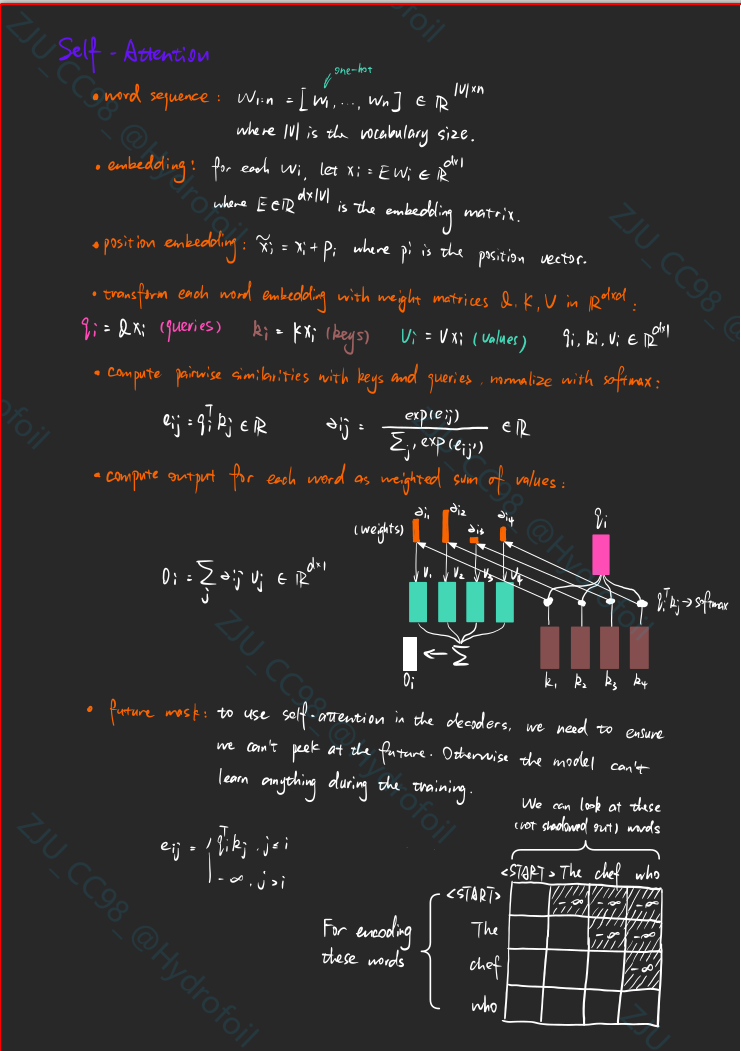 Self-Attention
one-hot
• word sequence: w₁:ₙ = [w₁, ..., wₙ] ∈ ℝ^|V|×n
where |V| is the vocabulary size.
• embedding: for each wᵢ, let xᵢ = Ewᵢ ∈ ℝ^d×1
where E∈ℝ^d×|V| is the embedding matrix.
• position embedding: x̃ᵢ = xᵢ + pᵢ where pᵢ is the position vector.
• transform each word embedding with weight matrices Q, K, V in ℝ^d×d:
qᵢ = Qxᵢ (queries) kᵢ = Kxᵢ (keys) vᵢ = Vxᵢ (values) qᵢ, kᵢ, vᵢ ∈ ℝ^d×1
• compute pairwise similarities with keys and queries, normalize with softmax:
eᵢⱼ = qᵢᵀkⱼ ∈ ℝ aᵢⱼ = exp(eᵢⱼ) / Σⱼ' exp(eᵢⱼ') ∈ ℝ
• compute output for each word as weighted sum of values:
(weights) aᵢ₁ aᵢ₂ aᵢ₃ aᵢ₄ qᵢ
oᵢ = Σⱼ aᵢⱼ vⱼ ∈ ℝ^d×1
v₁ v₂ v₃ v₄
qᵢᵀkⱼ → softmax
← Σ
oᵢ k₁ k₂ k₃ k₄
• future mask: to use self-attention in the decoders, we need to ensure
we can't peek at the future. Otherwise the model can't
learn anything during the training.
We can look at these
(not shadowed out) words
eᵢⱼ = { qᵢᵀkⱼ, j≤i
-∞, j>i
<START> The chef who
<START> -∞ -∞ -∞
The -∞ -∞
chef -∞
who
For encoding
these words
ZJU_CC98_@Hydrofoil
ZJU_CC98_@Hydrofoil
ZJU_CC98_@Hydrofoil
ZJU_CC98_@Hydrofoil